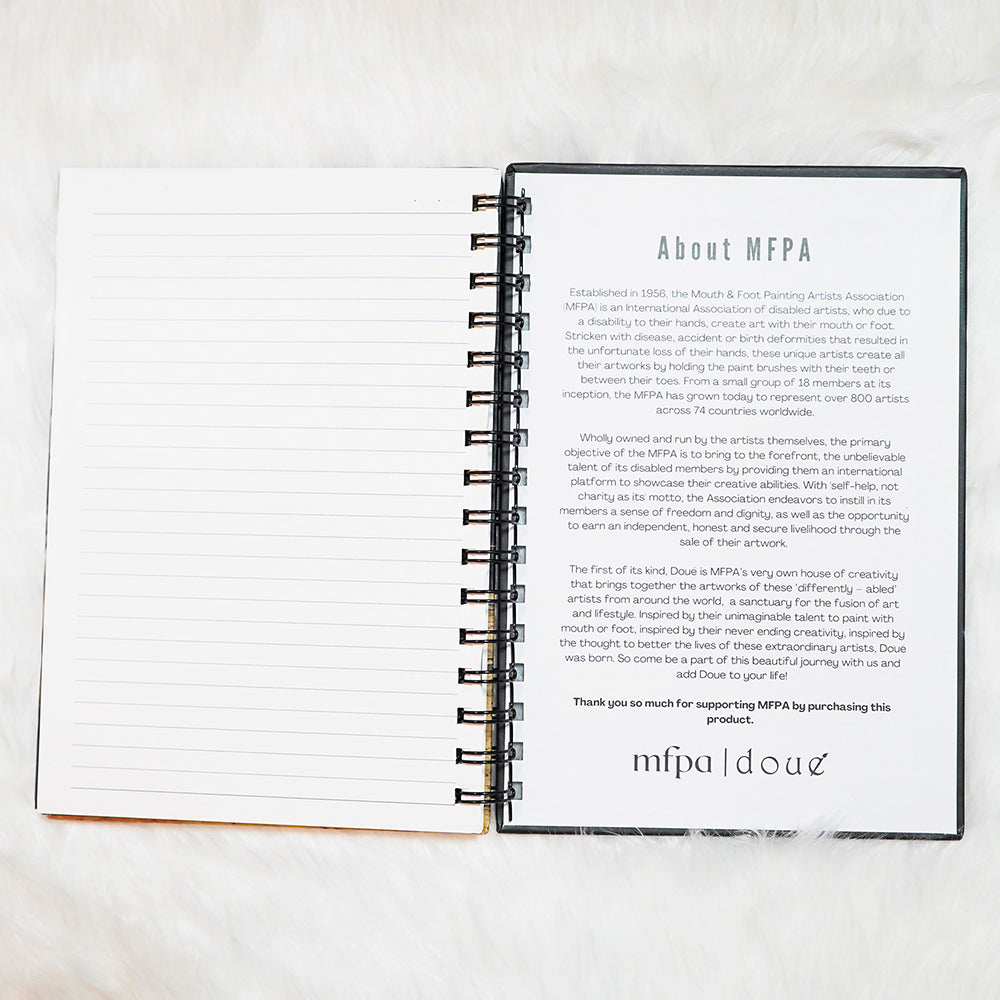 About MFPA
Established in 1956, the Mouth & Foot Painting Artists Association
(MFPA) is an International Association of disabled artists, who due to
a disability to their hands, create art with their mouth or foot.
Stricken with disease, accident or birth deformities that resulted in
the unfortunate loss of their hands, these unique artists create all
their artworks by holding the paint brushes with their teeth or
between their toes. From a small group of 18 members at its
inception, the MFPA has grown today to represent over 800 artists
across 74 countries worldwide.
Wholly owned and run by the artists themselves, the primary
objective of the MFPA is to bring to the forefront, the unbelievable
talent of its disabled members by providing them an international
platform to showcase their creative abilities. With 'self-help, not
charity as its' motto, the Association endeavors to instill in its
members a sense of freedom and dignity, as well as the opportunity
to earn an independent, honest and secure livelihood through the
sale of their artwork.
The first of its kind, Doué is MFPA's very own house of creativity
that brings together the artworks of these 'differently – abled'
artists from around the world, a sanctuary for the fusion of art
and lifestyle. Inspired by their unimaginable talent to paint with
mouth or foot, inspired by their never ending creativity, inspired by
the thought to better the lives of these extraordinary artists, Doué
was born. So come be a part of this beautiful journey with us and
add Doue to your life!
Thank you so much for supporting MFPA by purchasing this
product.
mfpa | doué